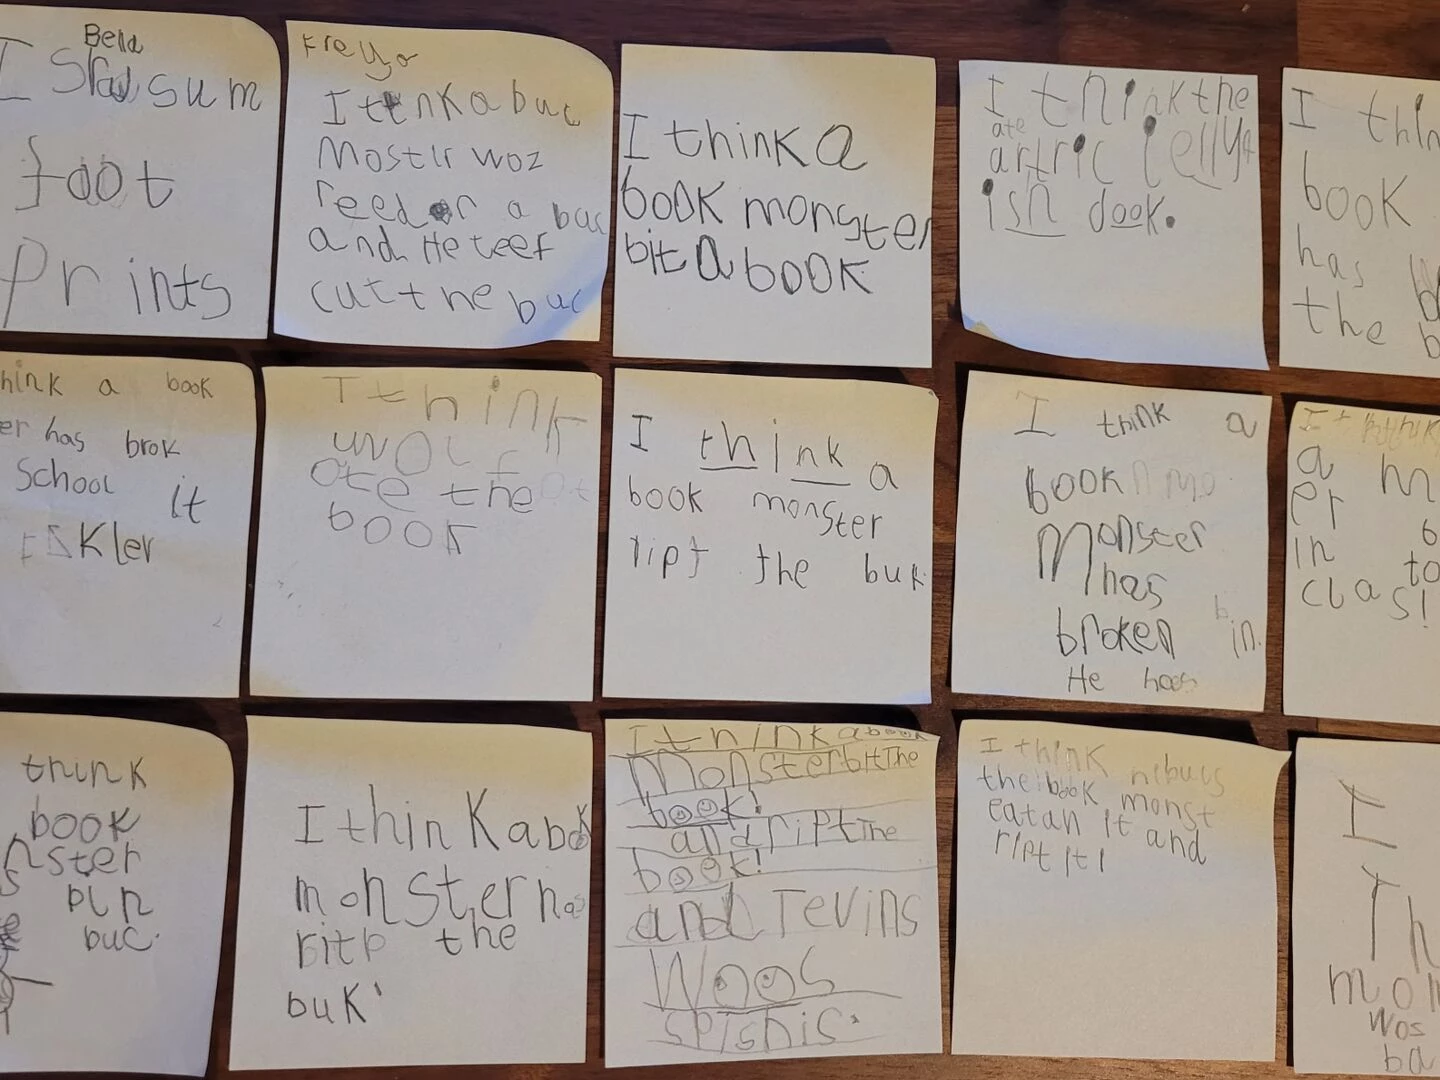 Bela
I saw sum
foot
prints
Freya
I think a buc
mostr woz
reed or a buc
and He teef
cut the buc
I think a
book monster
bit a book
I think the
ate
artric jellyf
ish dook.
I thin
book
has
the b
hink a book
er has brok
School it
Kler
I think
wolf
ate the
book
I think a
book monster
ript the buk
I think a
book mo
monster
has
broken in.
He has
I think
a m
er b
in to
clas s!
think
book
nster
s pin
buc.
I think a book
monster has
ritp the
buk!
I think a book
Monster bit The
book!
and ript The
book!
and Tevins
Woos
spishis.
I think nebucs
the book monst
eatan it and
ript it!
I
Th
mon
wos
ba